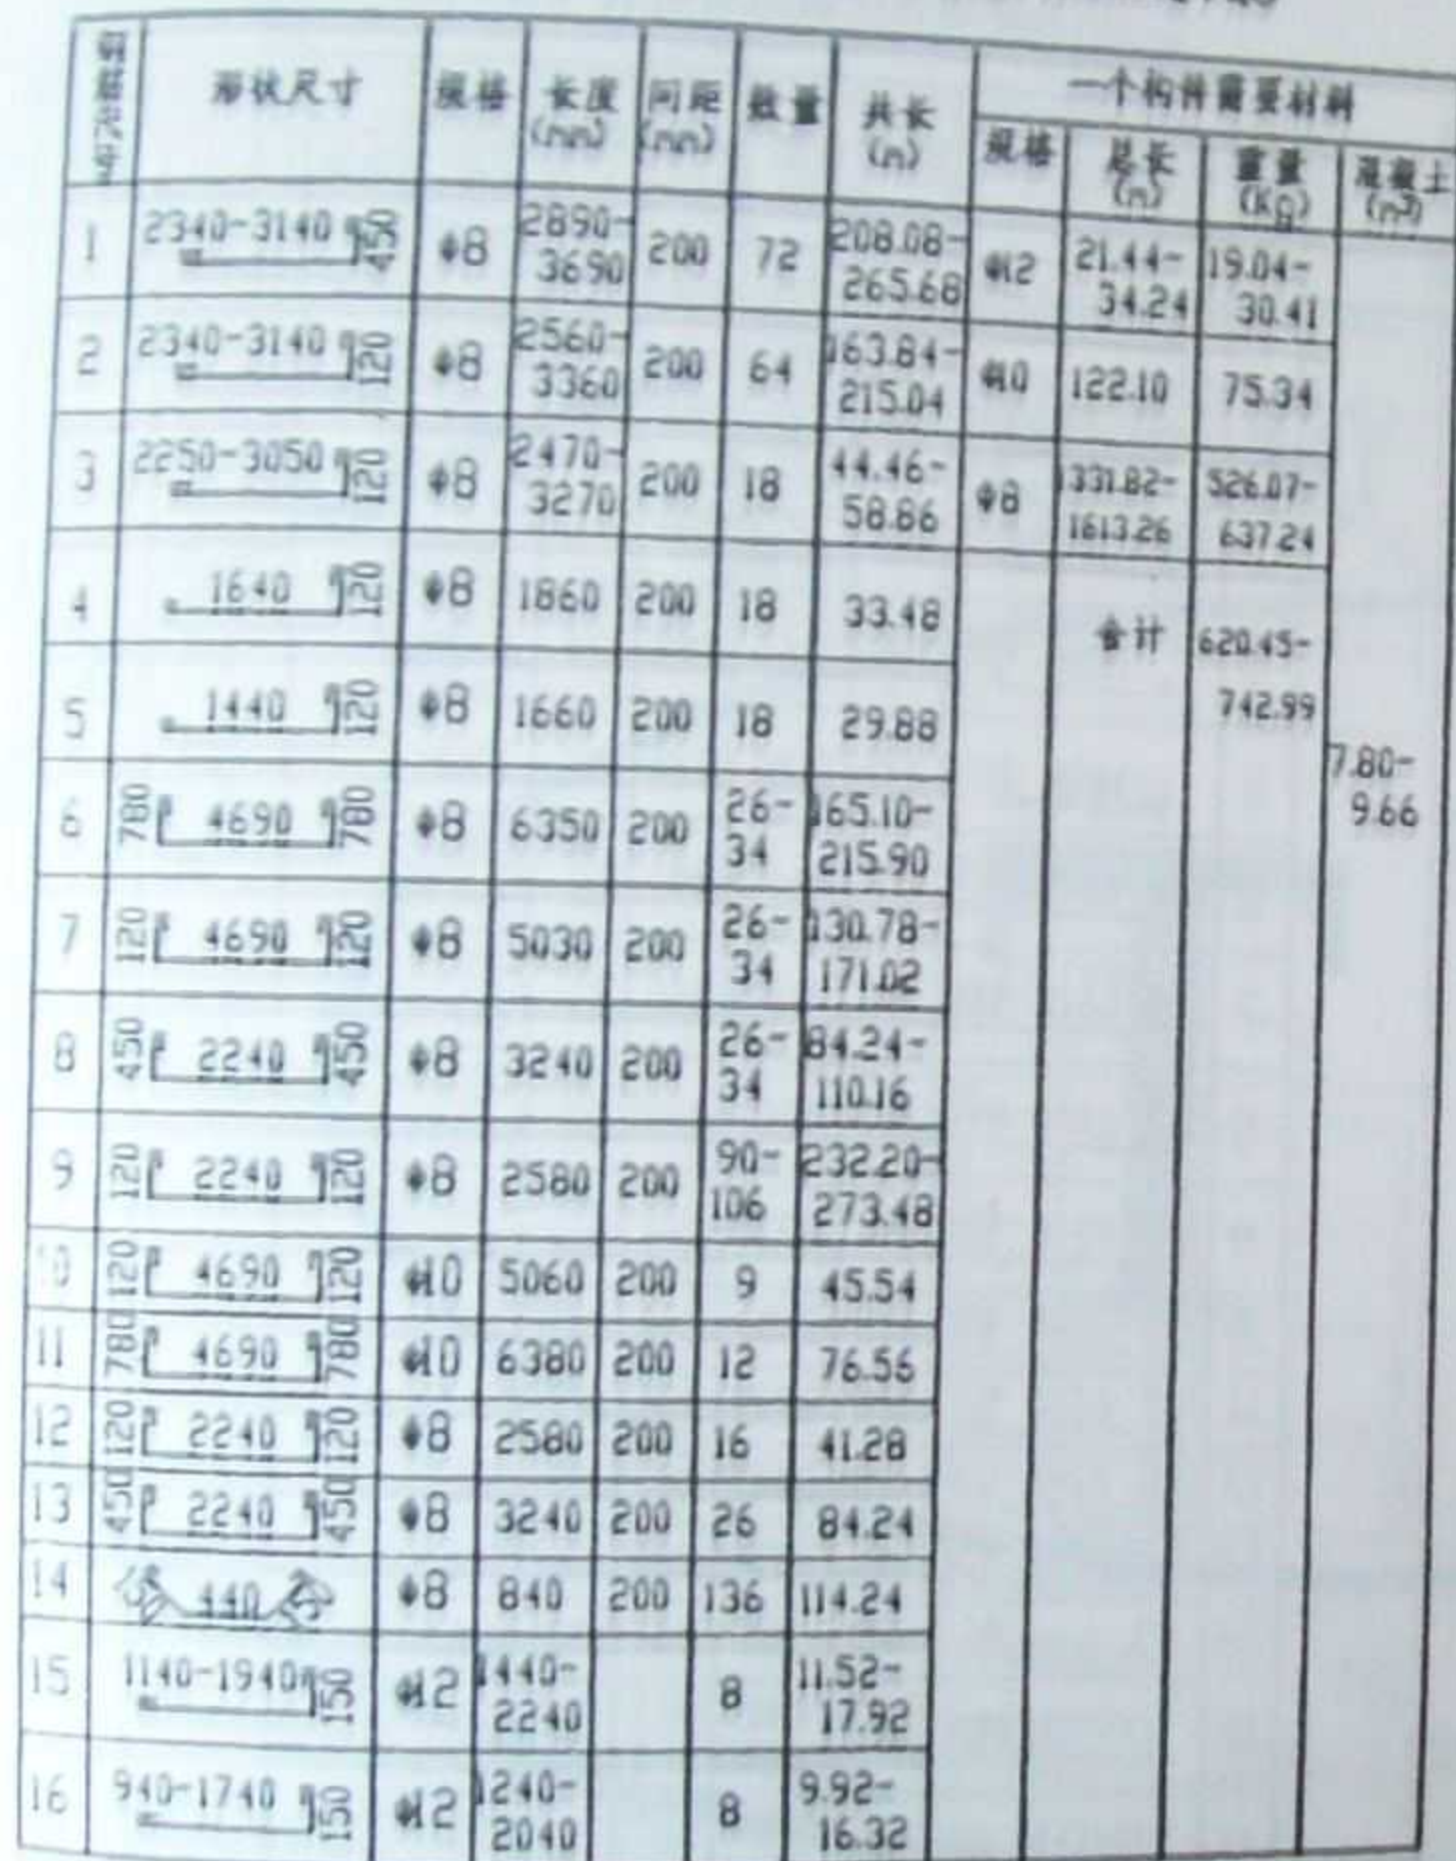 形状尺寸 规格 长度 间距 数量 共长 一个构件需要材料
(mm) (mm) (m) 规格 总长 重量 混凝土
(m) (Kg) (m³)
1 2340-3140 450 Φ8 2890-3690 200 72 208.08-265.68 Φ12 21.44-34.24 19.04-30.41
2 2340-3140 120 Φ8 2560-3360 200 64 163.84-215.04 Φ10 122.10 75.34
3 2250-3050 120 Φ8 2470-3270 200 18 44.46-58.86 Φ8 1331.82-1613.26 526.07-637.24
4 1640 120 Φ8 1860 200 18 33.48 合计 620.45-742.99
5 1440 120 Φ8 1660 200 18 29.88
7.80-9.66
6 780 4690 780 Φ8 6350 200 26-34 165.10-215.90
7 120 4690 120 Φ8 5030 200 26-34 130.78-171.02
8 450 2240 450 Φ8 3240 200 26-34 84.24-110.16
9 120 2240 120 Φ8 2580 200 90-106 232.20-273.48
10 120 4690 120 Φ10 5060 200 9 45.54
11 780 4690 780 Φ10 6380 200 12 76.56
12 120 2240 120 Φ8 2580 200 16 41.28
13 450 2240 450 Φ8 3240 200 26 84.24
14 440 Φ8 840 200 136 114.24
15 1140-1940 150 Φ12 1440-2240 8 11.52-17.92
16 940-1740 150 Φ12 1240-2040 8 9.92-16.32